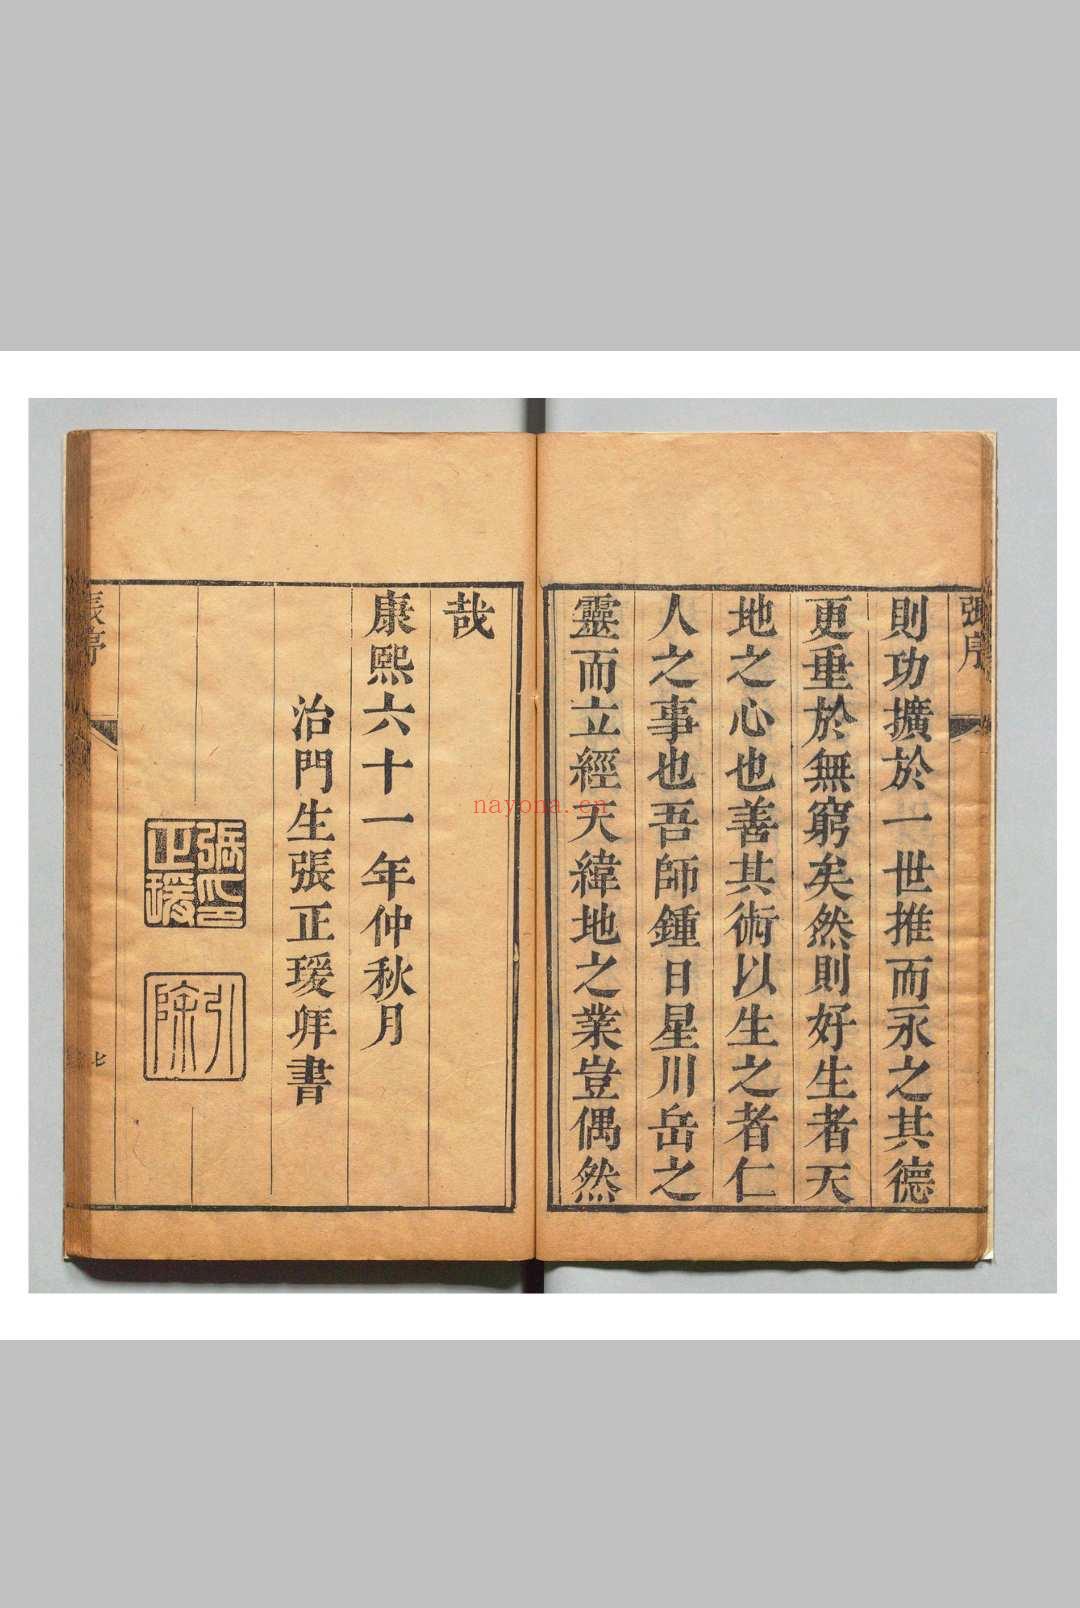 張序
則功擴於一世推而永之其德
更重於無窮矣然則好生者天
地之心也善其術以生之者仁
人之事也吾師鍾日星川岳之
靈而立經天緯地之業豈偶然
哉
康熙六十一年仲秋月
治門生張正瑗拜書
張印
正瑗
引
除
張序
七
nayona.cn